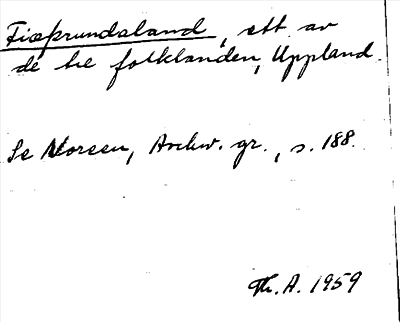 Fiæþrundaland, ett av
de tre folklanden, Uppland.
Se Noreen, Aschw. gr., s. 188.
Th. A. 1959